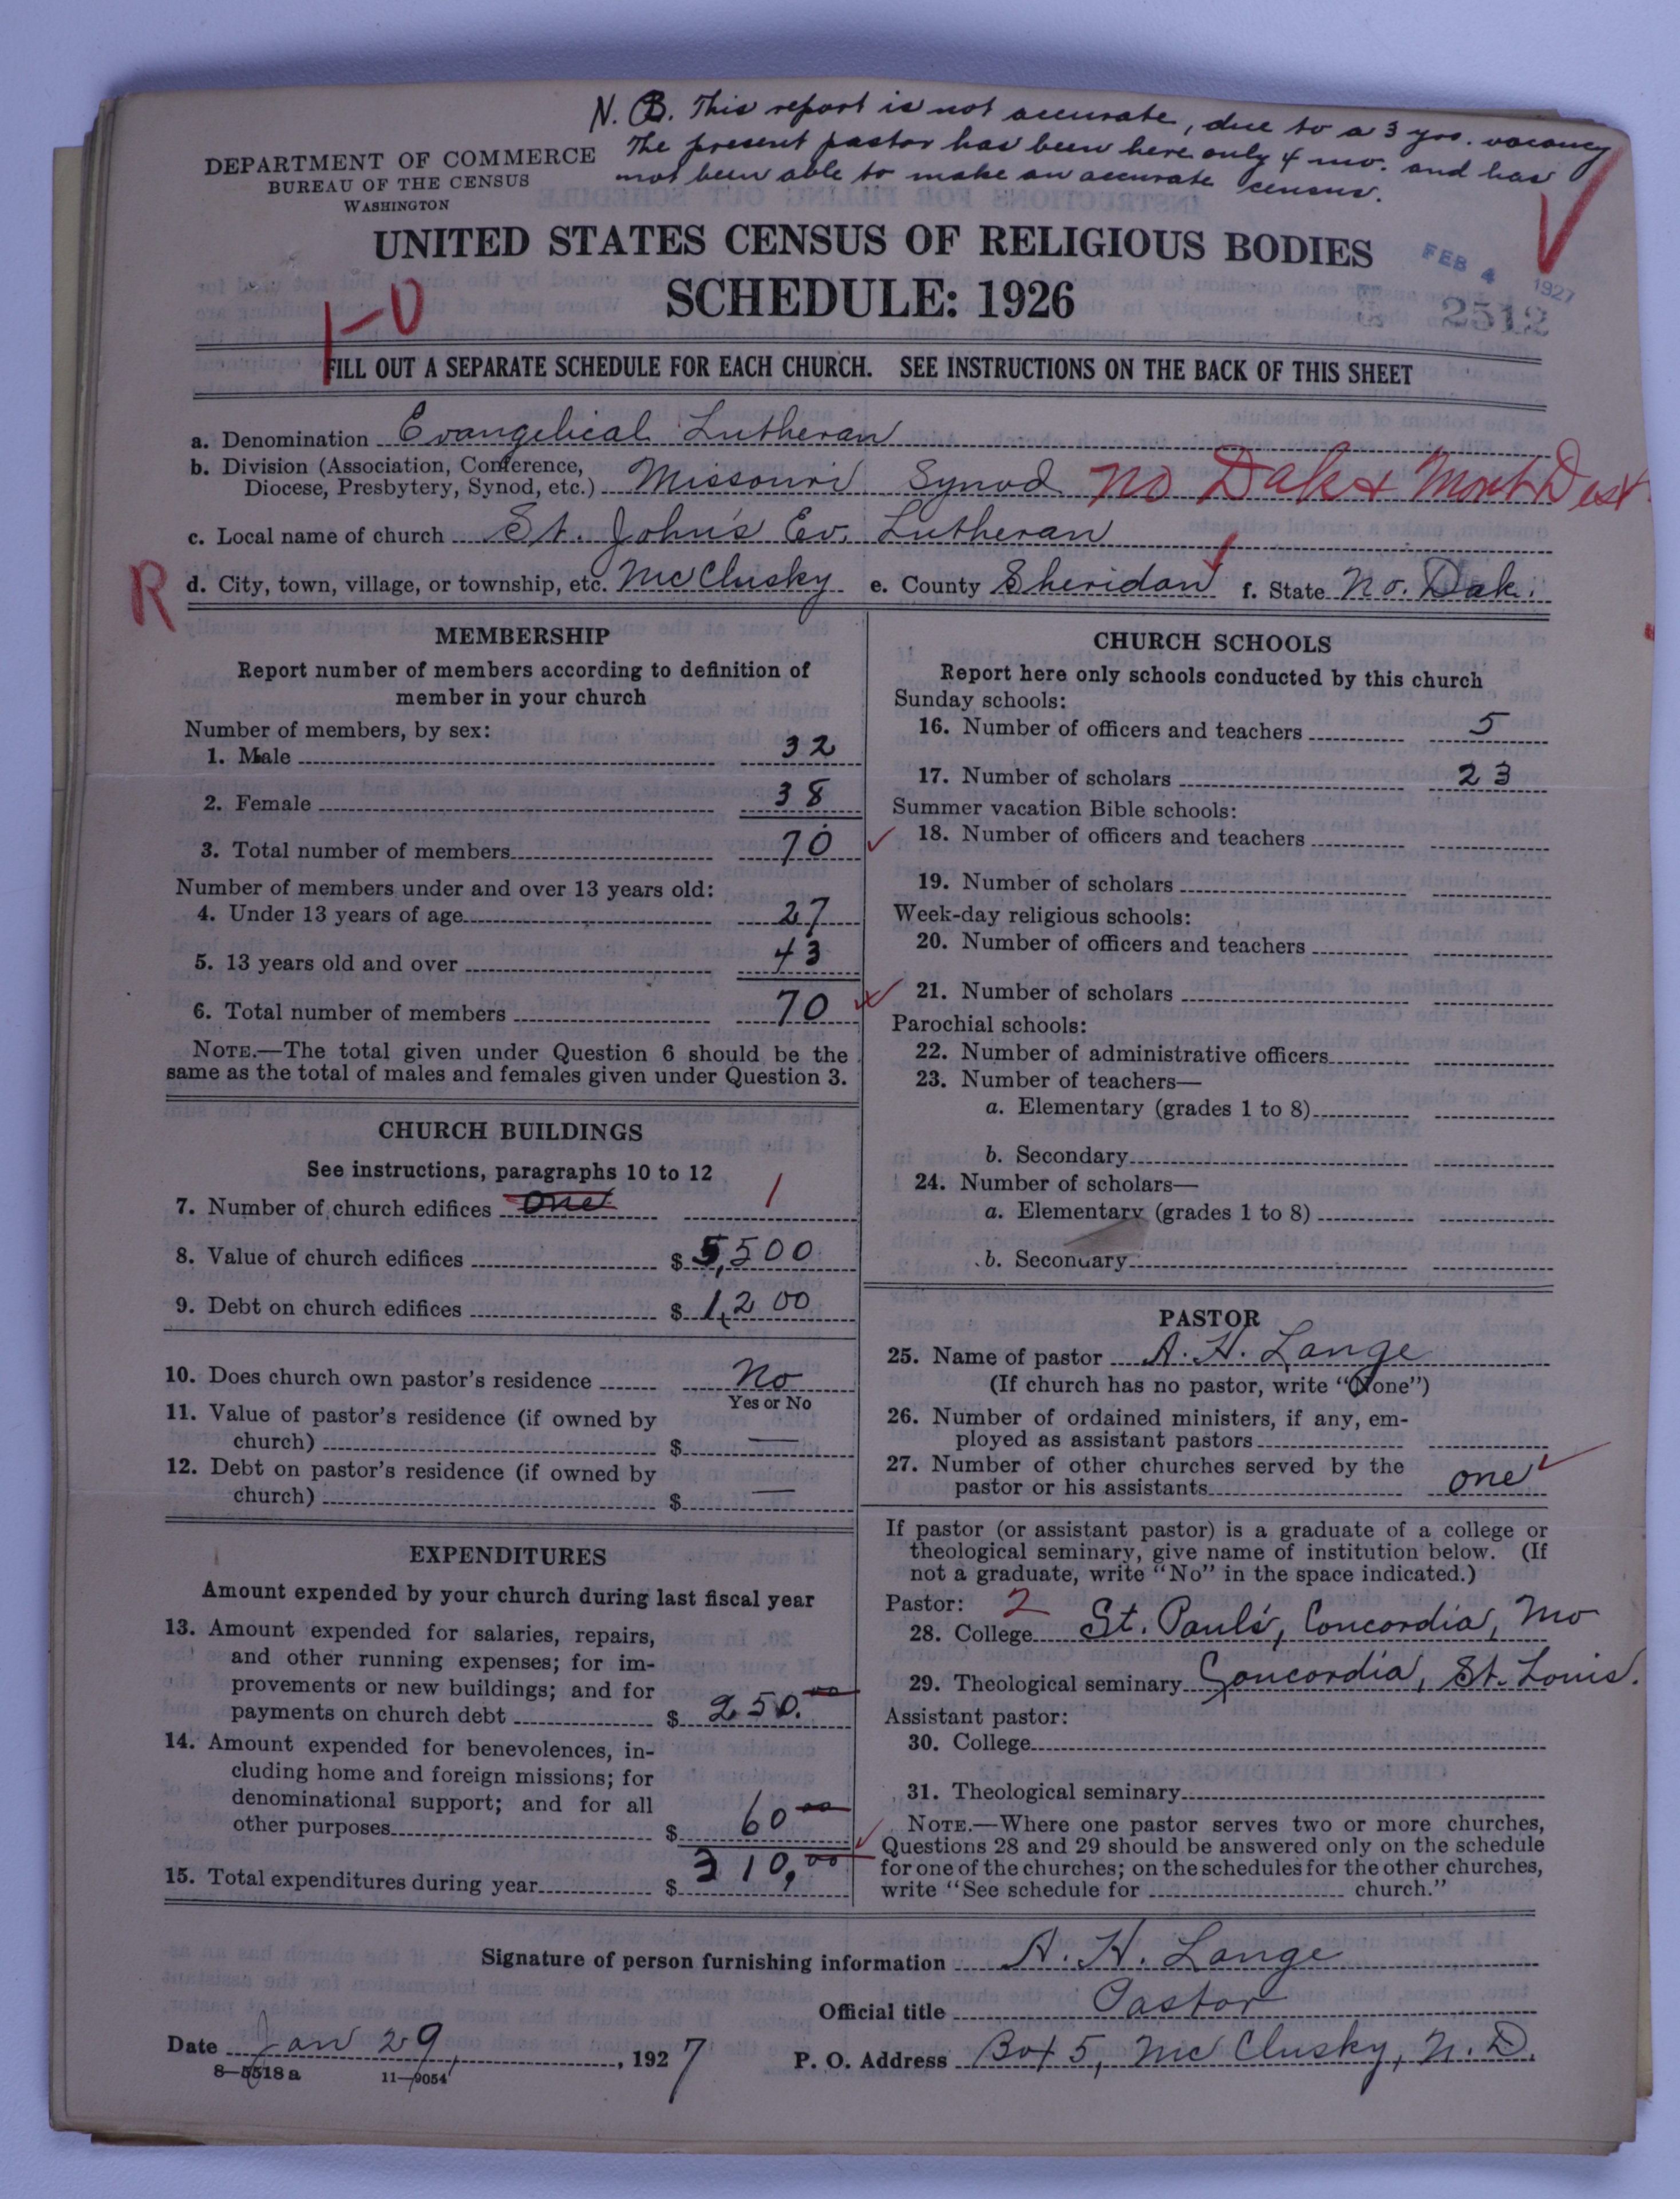 N. B. This report is not accurate, due to a 3 yrs. vacancy
The present pastor has been here only 4 mo. and has
not been able to make an accurate census.
DEPARTMENT OF COMMERCE
BUREAU OF THE CENSUS
WASHINGTON
UNITED STATES CENSUS OF RELIGIOUS BODIES
SCHEDULE: 1926
FEB 4 1927
2512
1-0
FILL OUT A SEPARATE SCHEDULE FOR EACH CHURCH. SEE INSTRUCTIONS ON THE BACK OF THIS SHEET
a. Denomination Evangelical Lutheran
b. Division (Association, Conference,
Diocese, Presbytery, Synod, etc.) Missouri Synod No Dak & Mont Dist
c. Local name of church St. John's Ev. Lutheran
R
d. City, town, village, or township, etc. McClusky e. County Sheridan f. State No. Dak.
MEMBERSHIP
Report number of members according to definition of
member in your church
Number of members, by sex:
1. Male 32
2. Female 38
3. Total number of members 70
Number of members under and over 13 years old:
4. Under 13 years of age 27
5. 13 years old and over 43
6. Total number of members 70
NOTE.—The total given under Question 6 should be the
same as the total of males and females given under Question 3.
CHURCH BUILDINGS
See instructions, paragraphs 10 to 12
7. Number of church edifices one 1
8. Value of church edifices $ 5,500
9. Debt on church edifices $ 1,200
10. Does church own pastor's residence No
Yes or No
11. Value of pastor's residence (if owned by
church) $ —
12. Debt on pastor's residence (if owned by
church) $ —
EXPENDITURES
Amount expended by your church during last fiscal year
13. Amount expended for salaries, repairs,
and other running expenses; for im-
provements or new buildings; and for
payments on church debt $ 250.00
14. Amount expended for benevolences, in-
cluding home and foreign missions; for
denominational support; and for all
other purposes $ 60 00
15. Total expenditures during year $ 310,00
CHURCH SCHOOLS
Report here only schools conducted by this church
Sunday schools:
16. Number of officers and teachers 5
17. Number of scholars 23
Summer vacation Bible schools:
18. Number of officers and teachers
19. Number of scholars
Week-day religious schools:
20. Number of officers and teachers
21. Number of scholars
Parochial schools:
22. Number of administrative officers
23. Number of teachers—
a. Elementary (grades 1 to 8)
b. Secondary
24. Number of scholars—
a. Elementary (grades 1 to 8)
b. Secondary
PASTOR
25. Name of pastor A. H. Lange
(If church has no pastor, write "None")
26. Number of ordained ministers, if any, em-
ployed as assistant pastors
27. Number of other churches served by the
pastor or his assistants one
If pastor (or assistant pastor) is a graduate of a college or
theological seminary, give name of institution below. (If
not a graduate, write "No" in the space indicated.)
Pastor: 2
28. College St. Paul's, Concordia, Mo
29. Theological seminary Concordia, St. Louis.
Assistant pastor:
30. College
31. Theological seminary
NOTE.—Where one pastor serves two or more churches,
Questions 28 and 29 should be answered only on the schedule
for one of the churches; on the schedules for the other churches,
write "See schedule for church."
Signature of person furnishing information A. H. Lange
Official title Pastor
Date Jan 29, 1927
P. O. Address Box 5, McClusky, N. D.
8—5518 a 11—9054